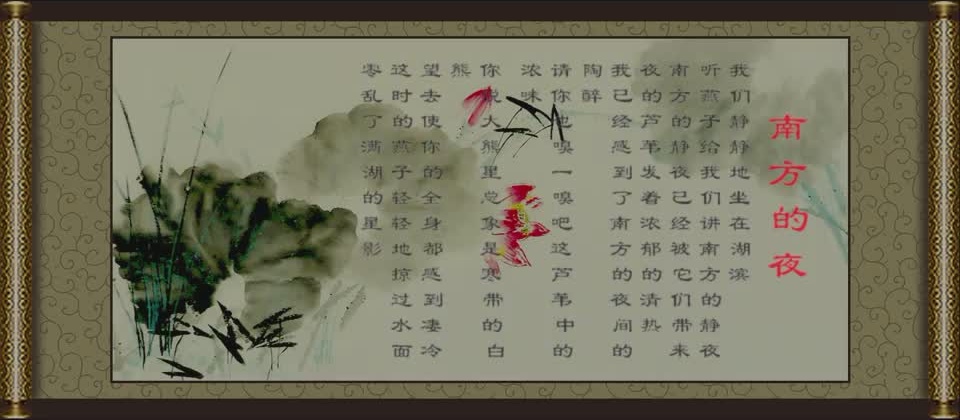 南方的夜
我们静静地坐在湖滨
听燕子给我们讲南方的静夜
南方的静夜已经被它们带来
夜的芦苇发着浓郁的清热
我已经感到了南方的夜间的
陶醉
请你也嗅一嗅吧这芦苇中的
浓味
你说大熊里总象是寒带的白
熊
望去使你的全身都感到凄冷
这时的燕子轻轻地掠过水面
零乱了满湖的星影